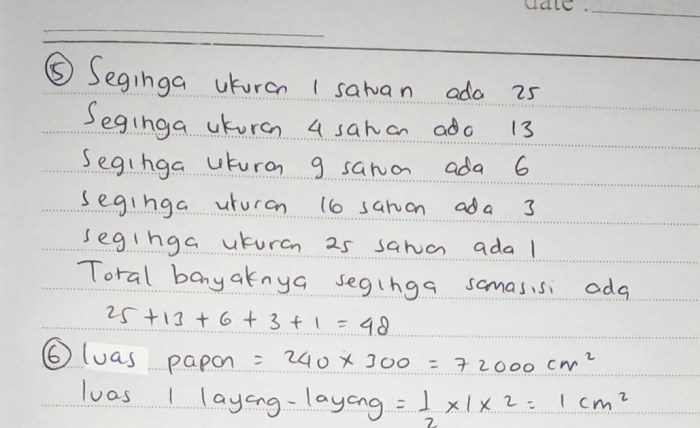 date :
⑤ Seginga ukuran 1 satuan ada 25
Seginga ukuran 4 satuan ada 13
Seginga ukuran 9 satuan ada 6
Seginga ukuran 16 satuan ada 3
Seginga ukuran 25 satuan ada 1
Total banyaknya seginga samasisi ada
25 + 13 + 6 + 3 + 1 = 48
⑥ luas papan = 240 × 300 = 72000 cm²
luas 1 layang-layang = 1/2 × 1 × 2 = 1 cm²